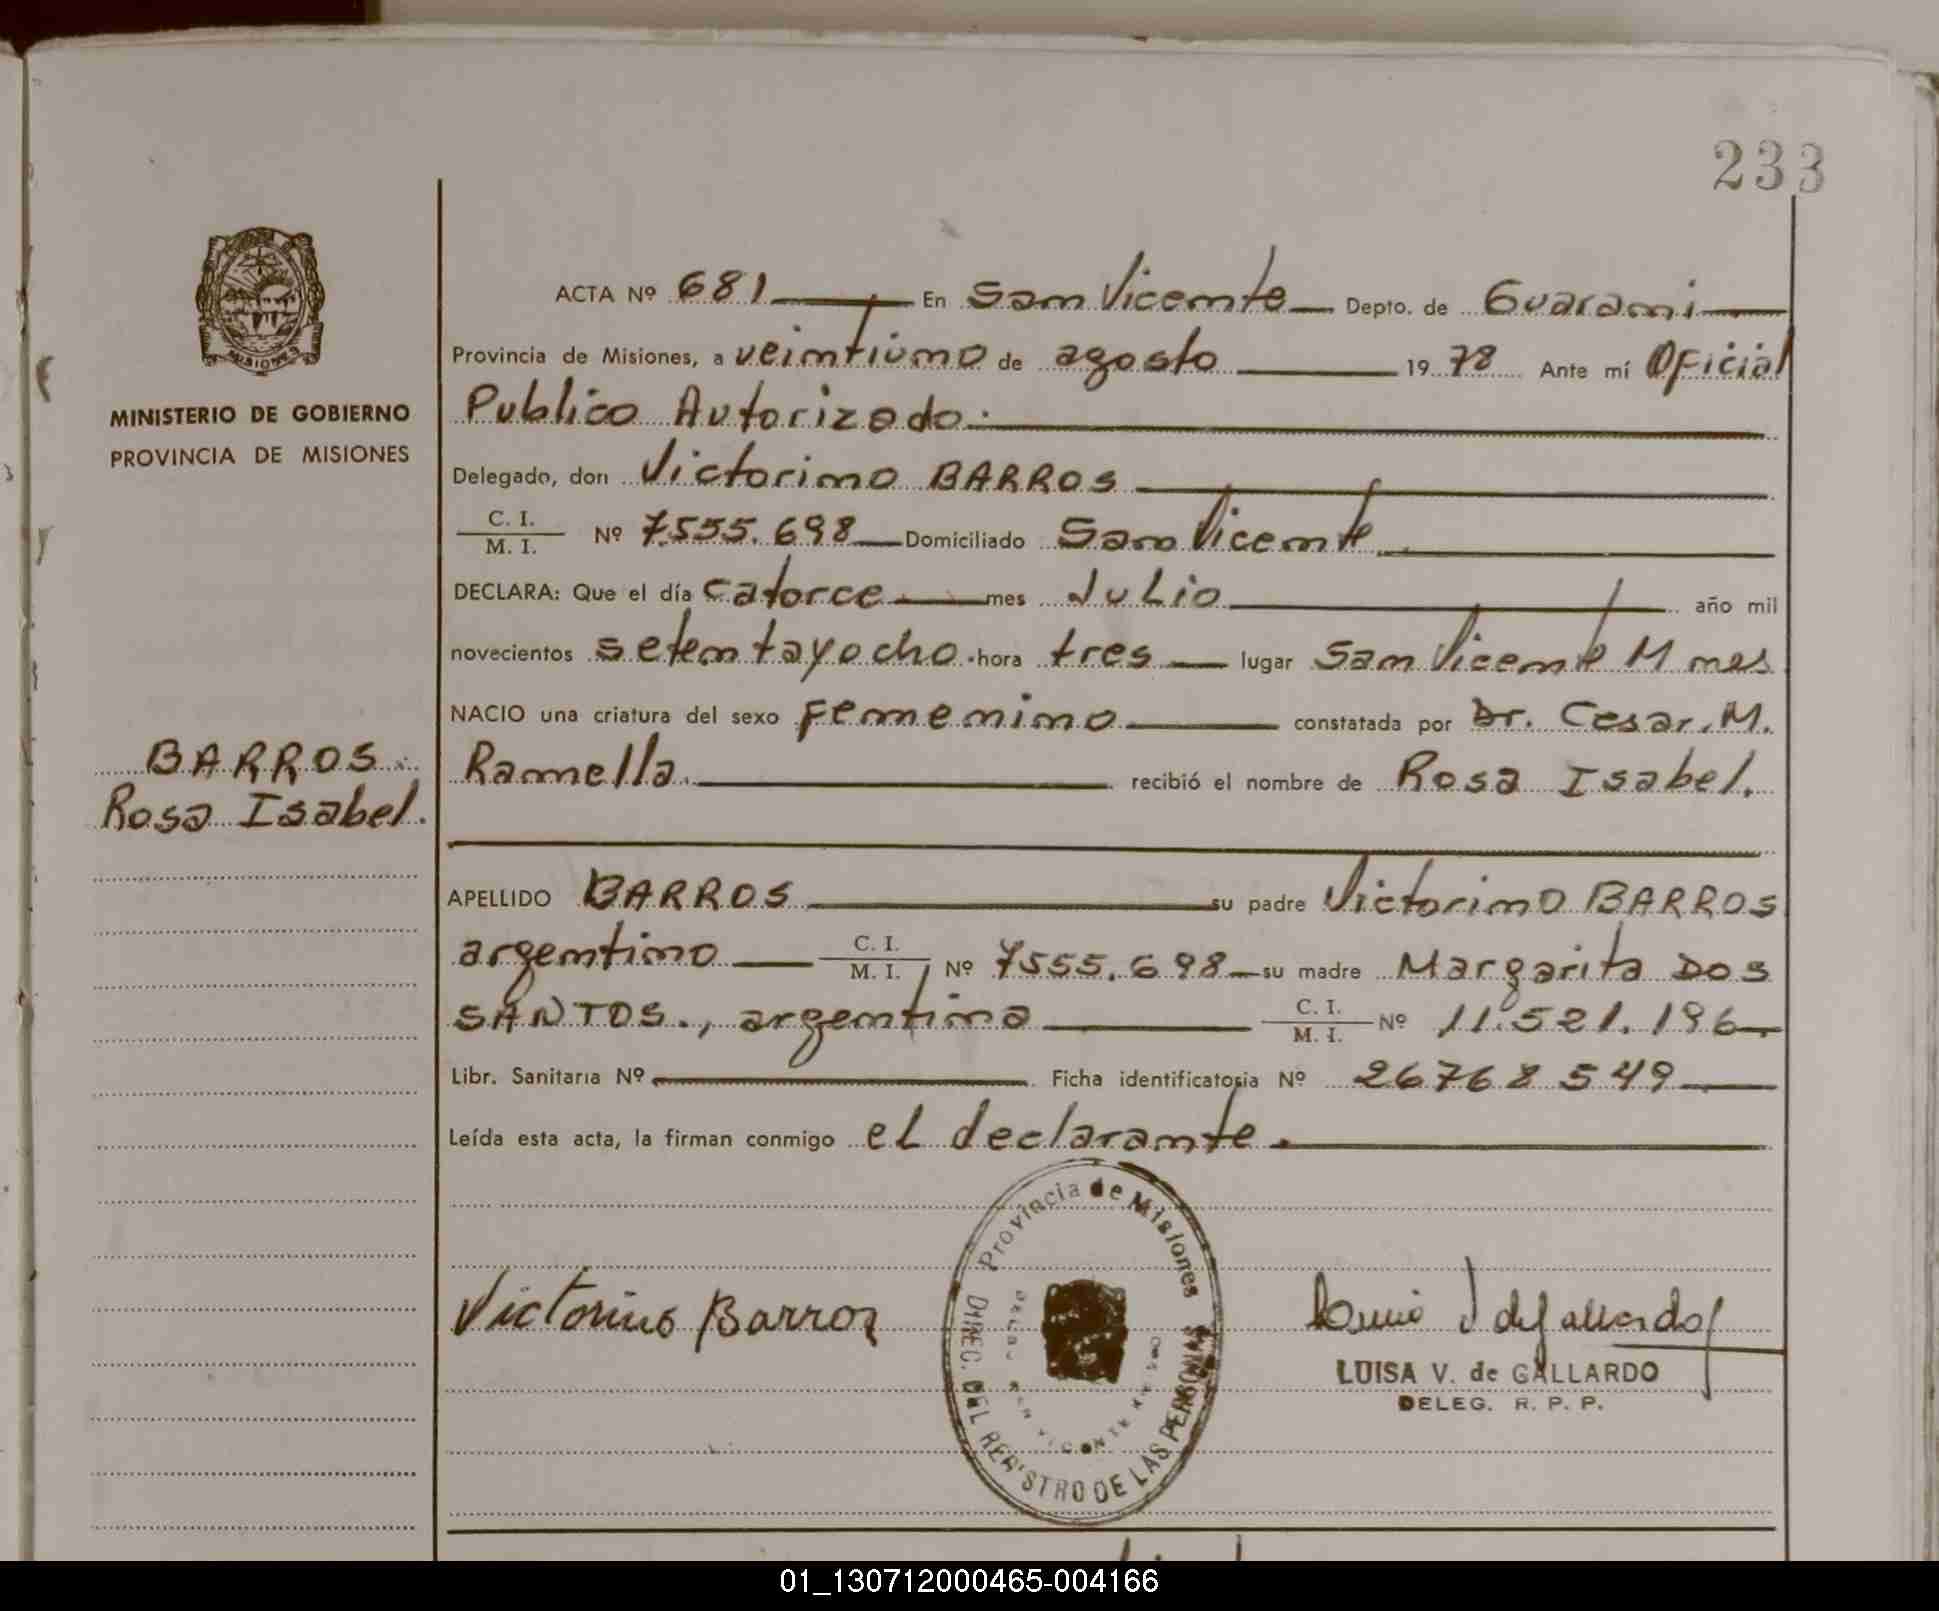 233
MISIONES
MINISTERIO DE GOBIERNO
PROVINCIA DE MISIONES
BARROS.
Rosa Isabel.
ACTA Nº 681 En San Vicente Depto. de Guarani
Provincia de Misiones, a veintiuno de agosto 1978 Ante mí Oficial
Publico Autorizado.
Delegado, don Victorino BARROS
C. I.
M. I. Nº 7.555.698 Domiciliado San Vicente
DECLARA: Que el día catorce mes Julio año mil
novecientos setentayocho. hora tres lugar San Vicente Mnes
NACIO una criatura del sexo femenino constatada por Dr. Cesar. M.
Ramella. recibió el nombre de Rosa Isabel.
APELLIDO BARROS su padre Victorino BARROS
argentino C. I.
M. I. Nº 7555.698 su madre Margarita DOS
SANTOS., argentina C. I.
M. I. Nº 11.521.196
Libr. Sanitaria Nº Ficha identificatoria Nº 26768549
Leída esta acta, la firman conmigo el declarante.
Victorino Barros
Provincia de Misiones
DIREC. DEL REGISTRO DE LAS PERSONAS
LUISA V. de GALLARDO
DELEG. R. P. P.
01_130712000465-004166